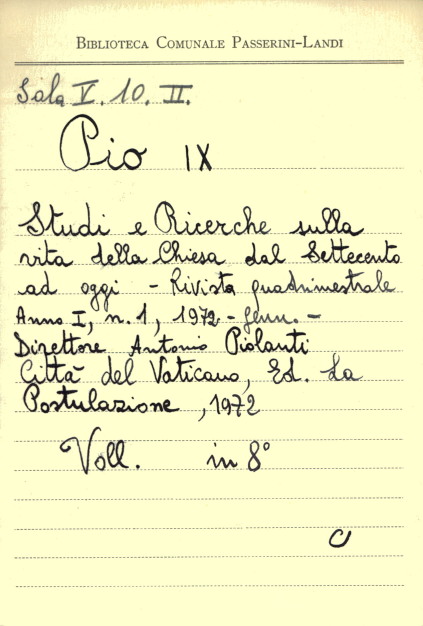 BIBLIOTECA COMUNALE PASSERINI-LANDI
Sala V. 10. II.
Pio IX
Studi e Ricerche sulla
vita della Chiesa dal Settecento
ad oggi - Rivista quadrimestrale
Anno I, n. 1, 1972 - Genn. -
Direttore Antonio Piolanti
Città del Vaticano, Ed. La
Postulazione, 1972
Voll. in 8°